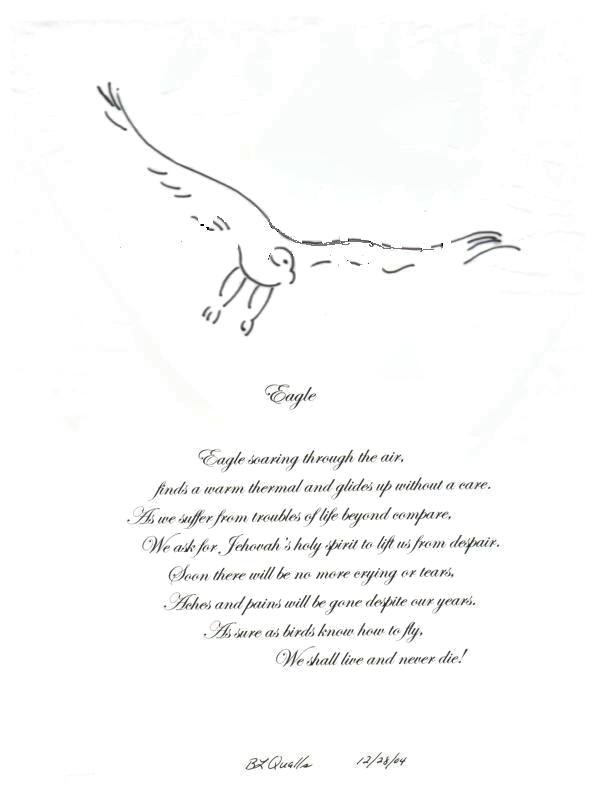 Eagle
Eagle soaring through the air,
finds a warm thermal and glides up without a care.
As we suffer from troubles of life beyond compare,
We ask for Jehovah's holy spirit to lift us from despair.
Soon there will be no more crying or tears,
Aches and pains will be gone despite our years.
As sure as birds know how to fly,
We shall live and never die!
BL Qualls 12/28/04